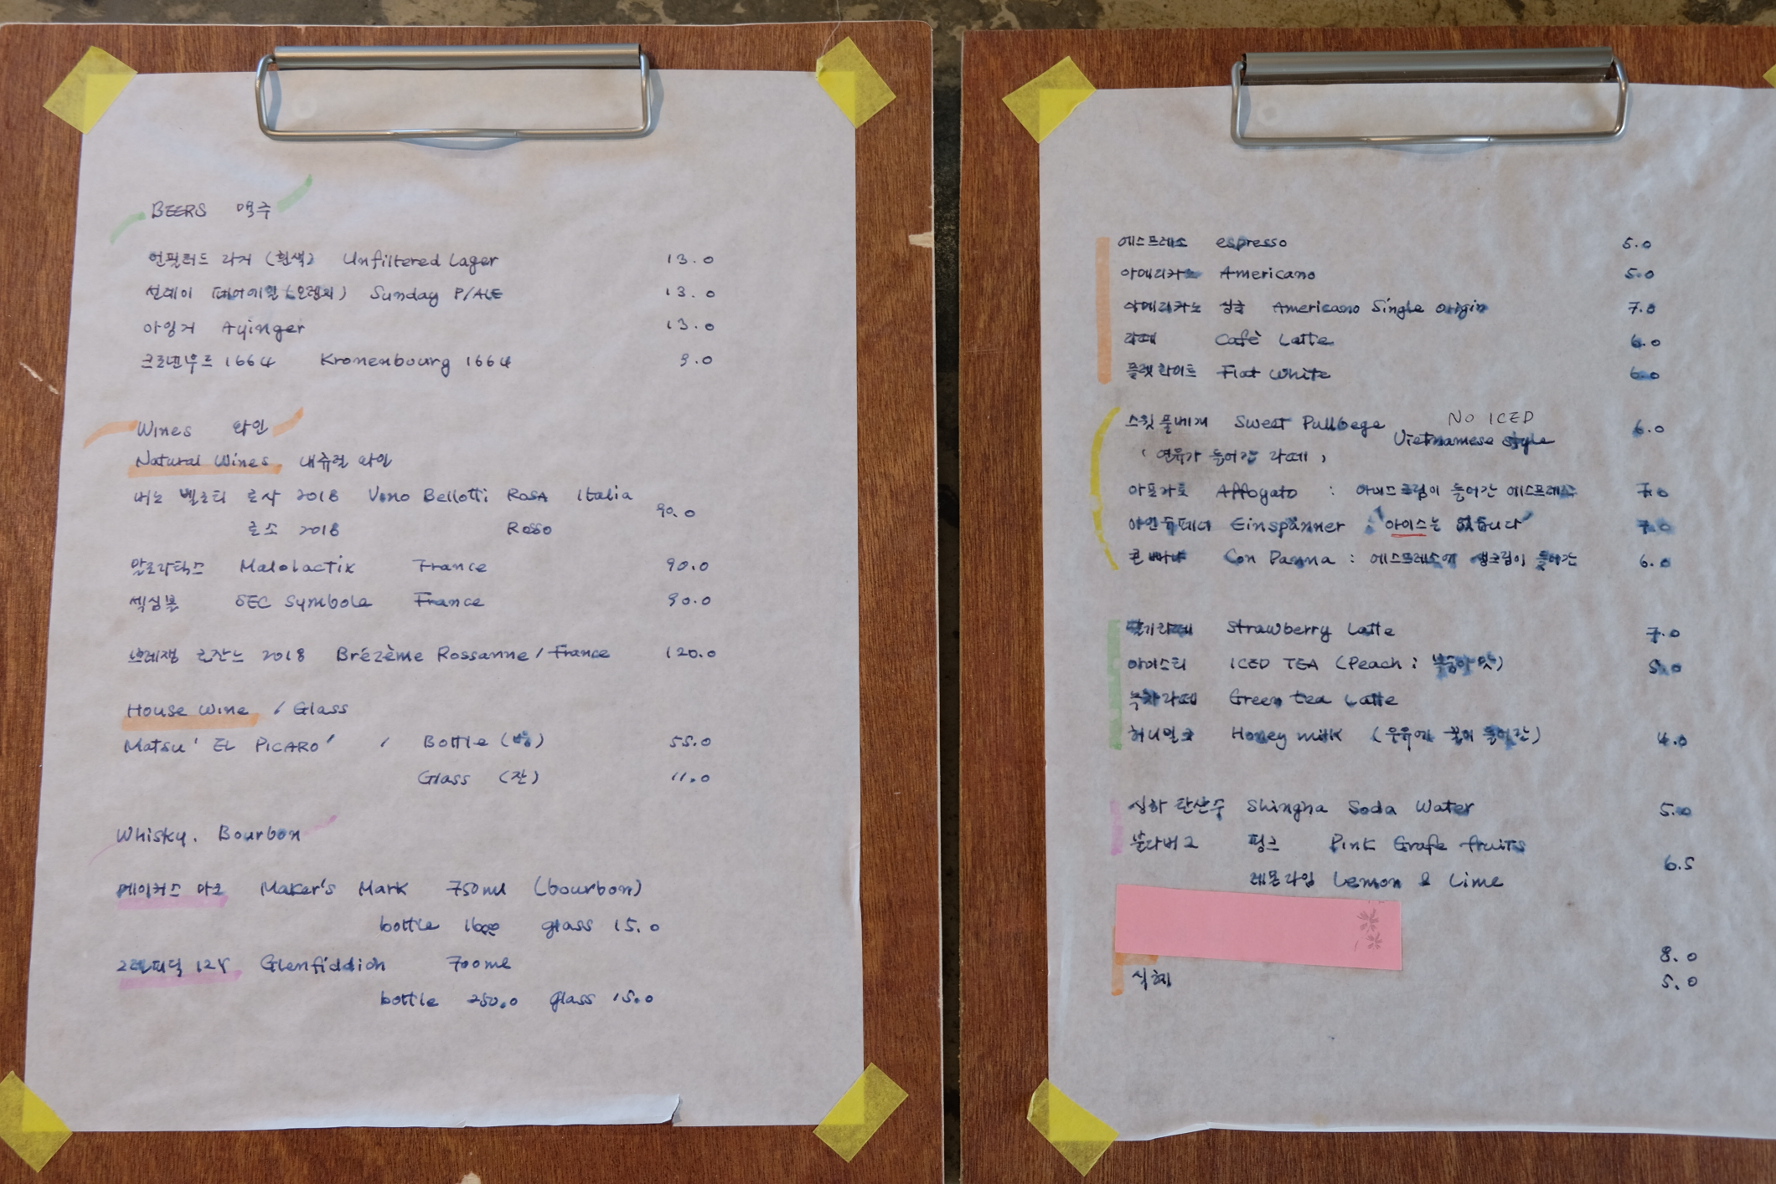 BEERS 맥주
언필터드 라거 (흰색) Unfiltered Lager 13.0
선데이 페어에일 (오렌지) Sunday P/ALE 13.0
아잉거 Ayinger 13.0
크로넨부르 1664 Kronenbourg 1664 9.0
Wines 와인
Natural Wines 내츄럴 와인
비노 벨로티 로사 2018 Vino Bellotti Rosa Italia 90.0
로소 2018 Rosso
말로락틱스 Malolactix France 90.0
섹심볼 SEC Symbole France 90.0
브레젬 로잔느 2018 Brézème Rossanne / France 120.0
House Wine / Glass
Matsu 'EL PICARO' / Bottle (병) 55.0
Glass (잔) 11.0
Whisky. Bourbon
메이커스 마크 Maker's Mark 750ml (bourbon)
bottle glass 15.0
그렌피딕 12Y Glenfiddich 700ml
bottle 250.0 glass 15.0
에스프레소 espresso 5.0
아메리카노 Americano 5.0
아메리카노 싱글 Americano Single origin 7.0
라떼 Cafè Latte 6.0
플랫화이트 Flat White 6.0
스윗풀베게 Sweet Pullbege NO ICED Vietnamese style 6.0
(연유가 들어간 라떼)
아포가토 Affogato : 아이스크림이 들어간 에스프레소 7.0
아인슈페너 Einspänner : 아이스는 없습니다 7.0
콘빠나 Con Panna : 에스프레소에 생크림이 들어간 6.0
딸기라떼 Strawberry Latte 7.0
아이스티 ICED TEA (Peach : 복숭아맛) 5.0
녹차라떼 Green tea Latte
허니밀크 Honey milk (우유에 꿀이 들어간) 4.0
싱하 탄산수 Shingha Soda Water 5.0
쏠다버그 핑크 Pink Grafe fruits 6.5
레몬라임 Lemon & Lime
8.0
식혜 5.0